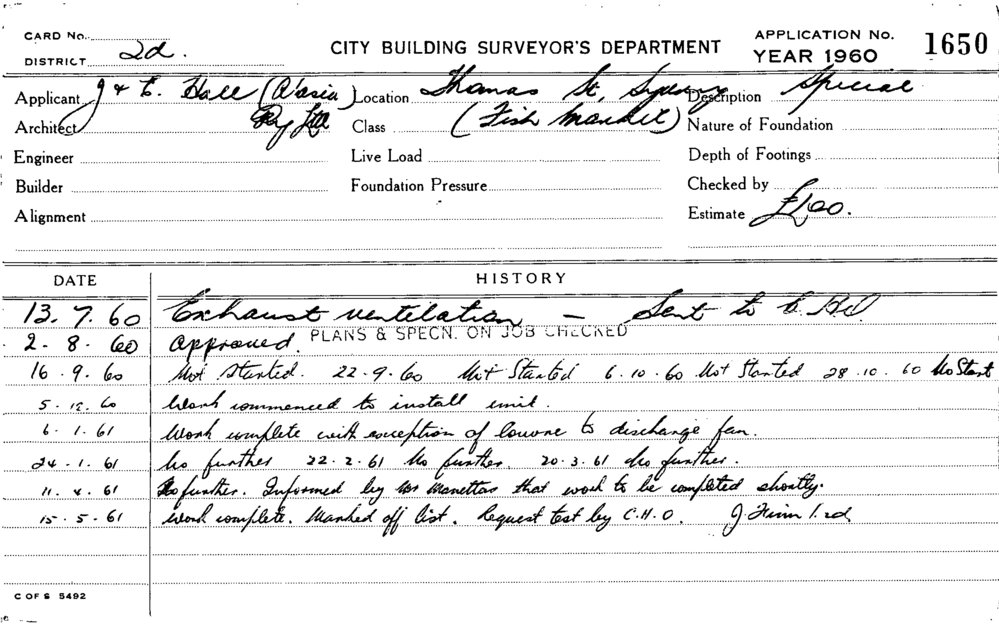 CARD No. CITY BUILDING SURVEYOR'S DEPARTMENT APPLICATION No. 1650
DISTRICT 2d. YEAR 1960
Applicant J & E. Hall (A'asia) Location Thomas St, Sydney Description Special
Architect Pty Ltd Class (Fish Market) Nature of Foundation
Engineer Live Load Depth of Footings
Builder Foundation Pressure Checked by
Alignment Estimate £200.
DATE HISTORY
13. 7. 60 Exhaust ventilation – Sent to
2 - 8. 60 Approved. PLANS & SPECN. ON JOB CHECKED
16 . 9. 60 Not Started. 22 - 9. 60 Not Started 6 . 10 . 60 Not Started 28 . 10 . 60 No Start
5 - 12. 60 Work commenced to install unit.
6 . 1. 61 Work complete with exception of louvre to discharge fan.
24 - 1. 61 No further 22 - 2 - 61 No further. 20 . 3. 61 No further.
11. 4. 61 No further. Informed by Mr that work to be completed shortly.
15 - 5 - 61 Work complete. Marked off list. Request test by C.H.O.
C OF S 5492